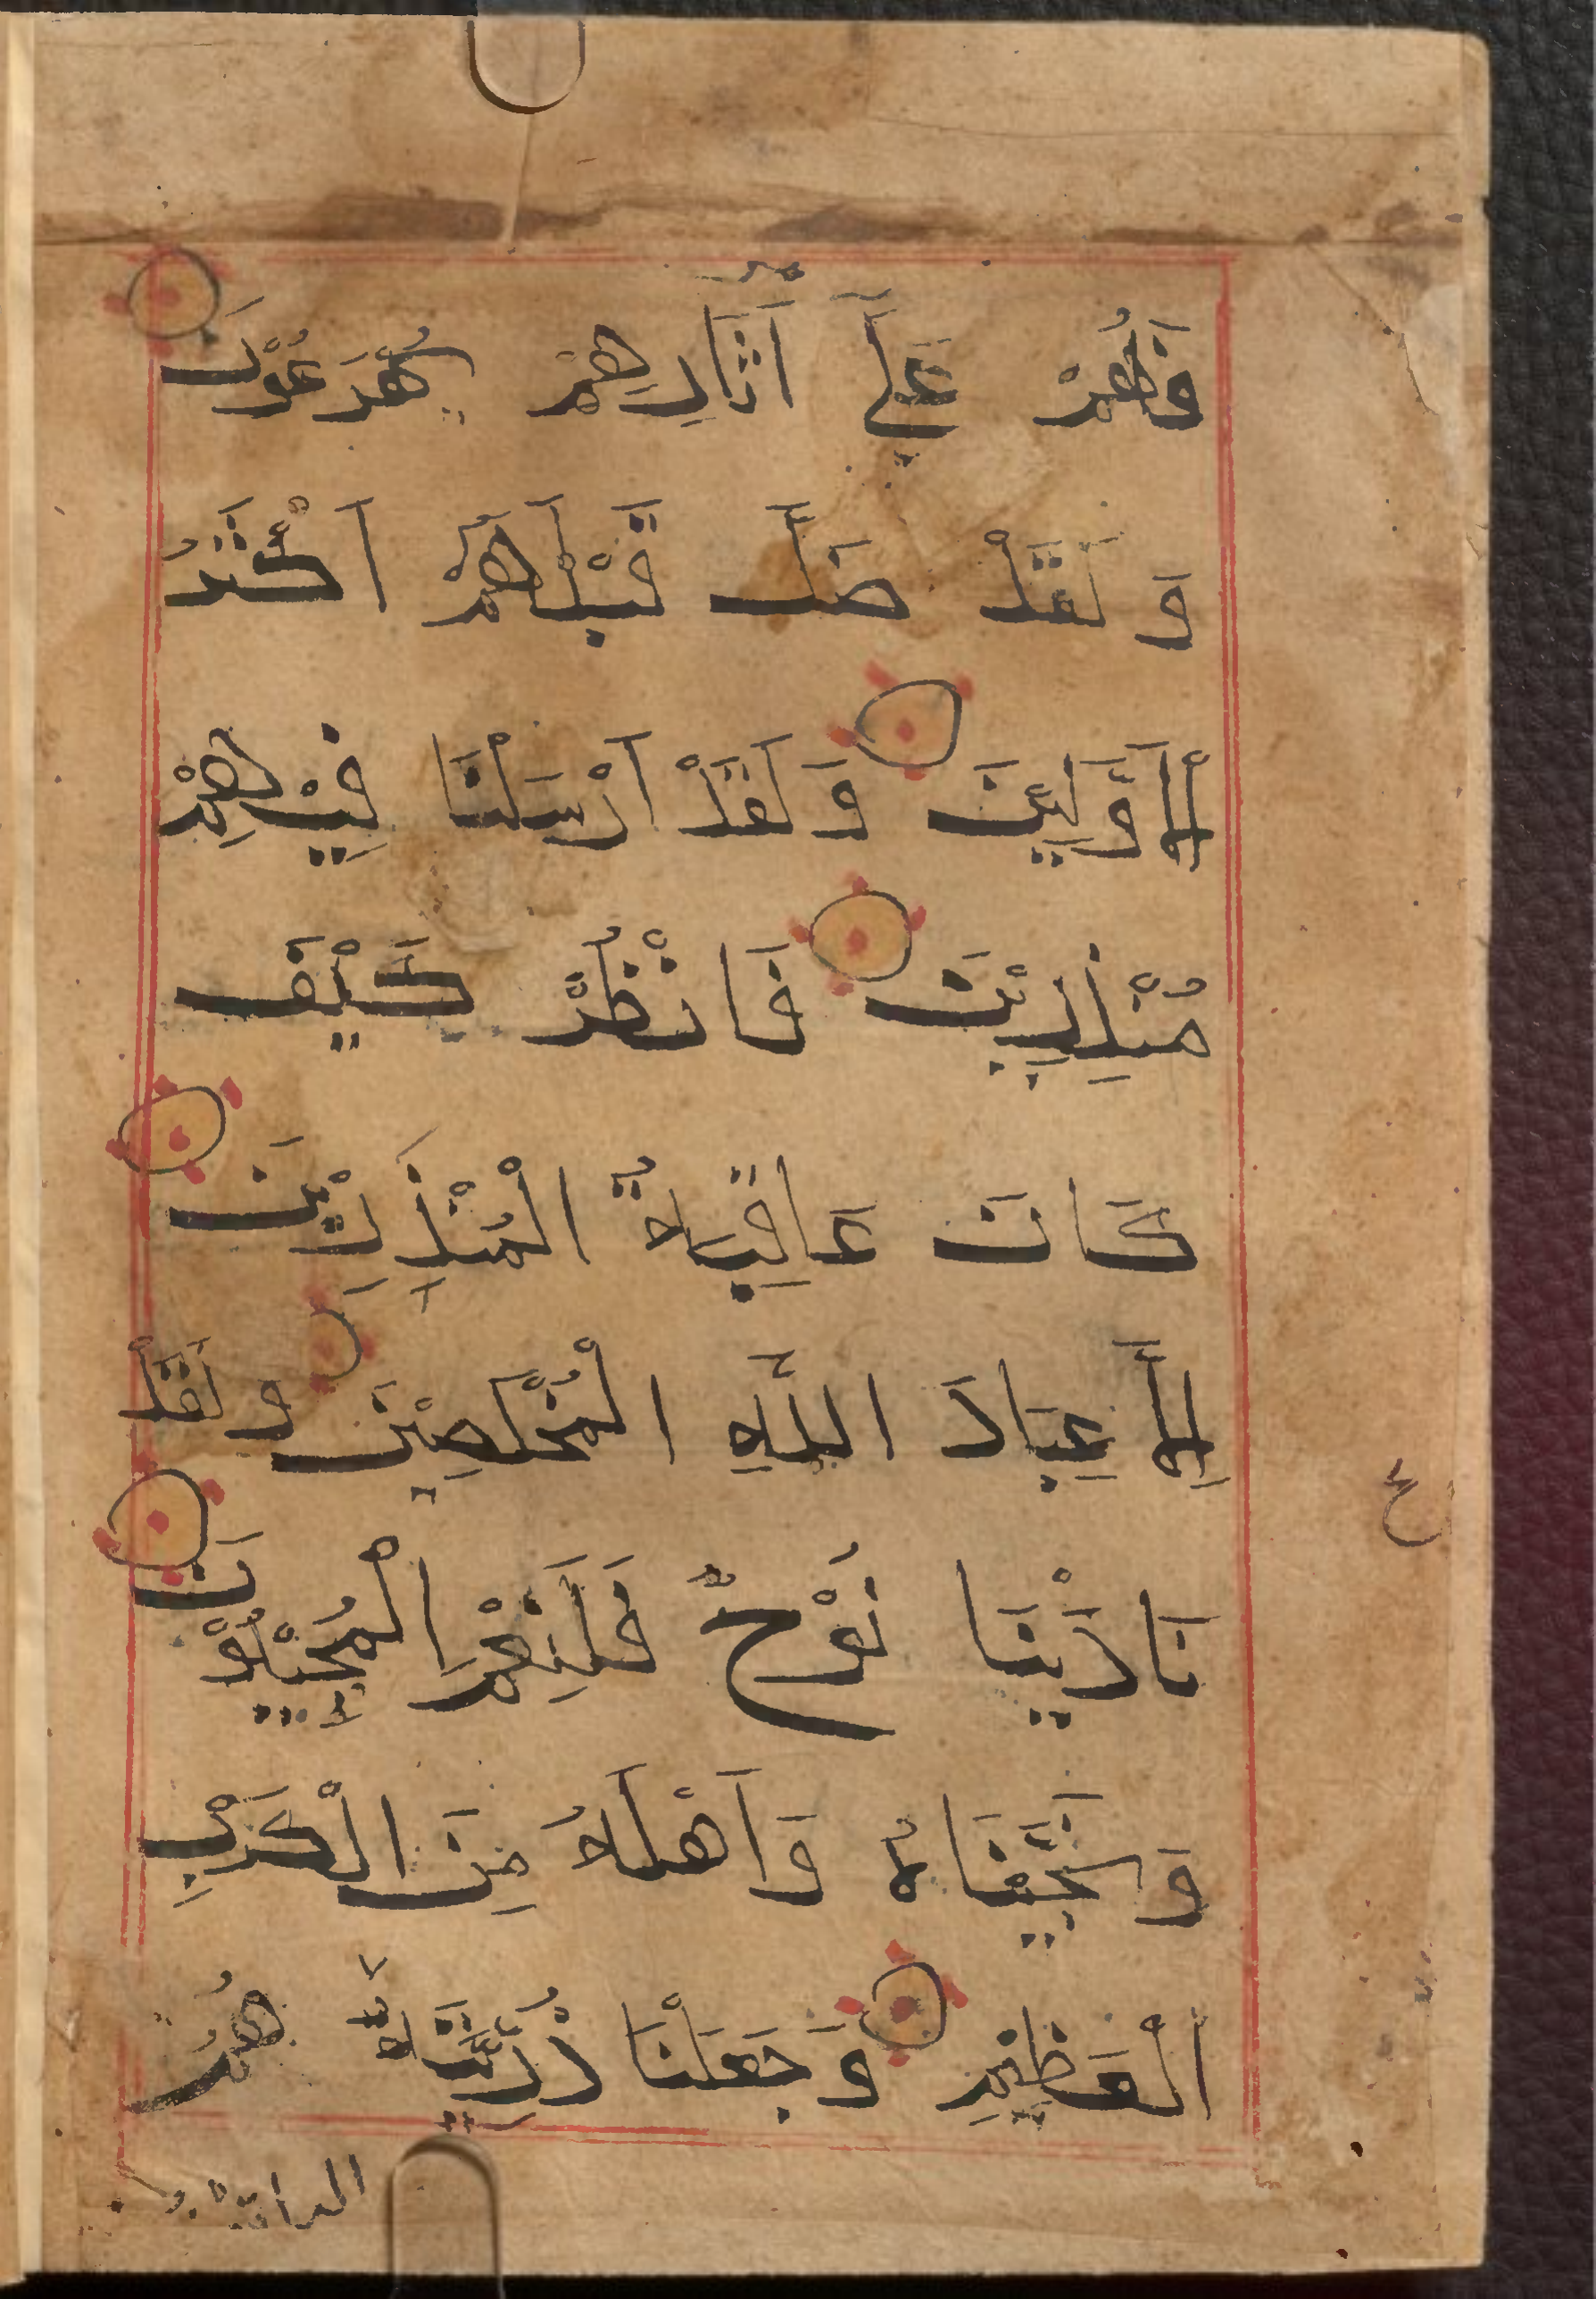 فَهُمْ عَلٰۤى اٰثَارِهِمْ يُهْرَعُوْنَ
وَ لَقَدْ ضَلَّ قَبْلَهُمْ اَكْثَرُ
الْاَوَّلِيْنَ وَ لَقَدْ اَرْسَلْنَا فِيْهِمْ
مُنْذِرِيْنَ فَانْظُرْ كَيْفَ
كَانَ عَاقِبَةُ الْمُنْذَرِيْنَ
اِلَّا عِبَادَ اللّٰهِ الْمُخْلَصِيْنَ وَ لَقَدْ
نَادَيْنَا نُوْحٌ فَلَنِعْمَ الْمُجِيْبُوْنَ
وَ نَجَّيْنَاهُ وَ اَهْلَهُ مِنَ الْكَرْبِ
الْعَظِيْمِ وَ جَعَلْنَا ذُرِّيَّتَهُ هُمُ
ع
الباقين